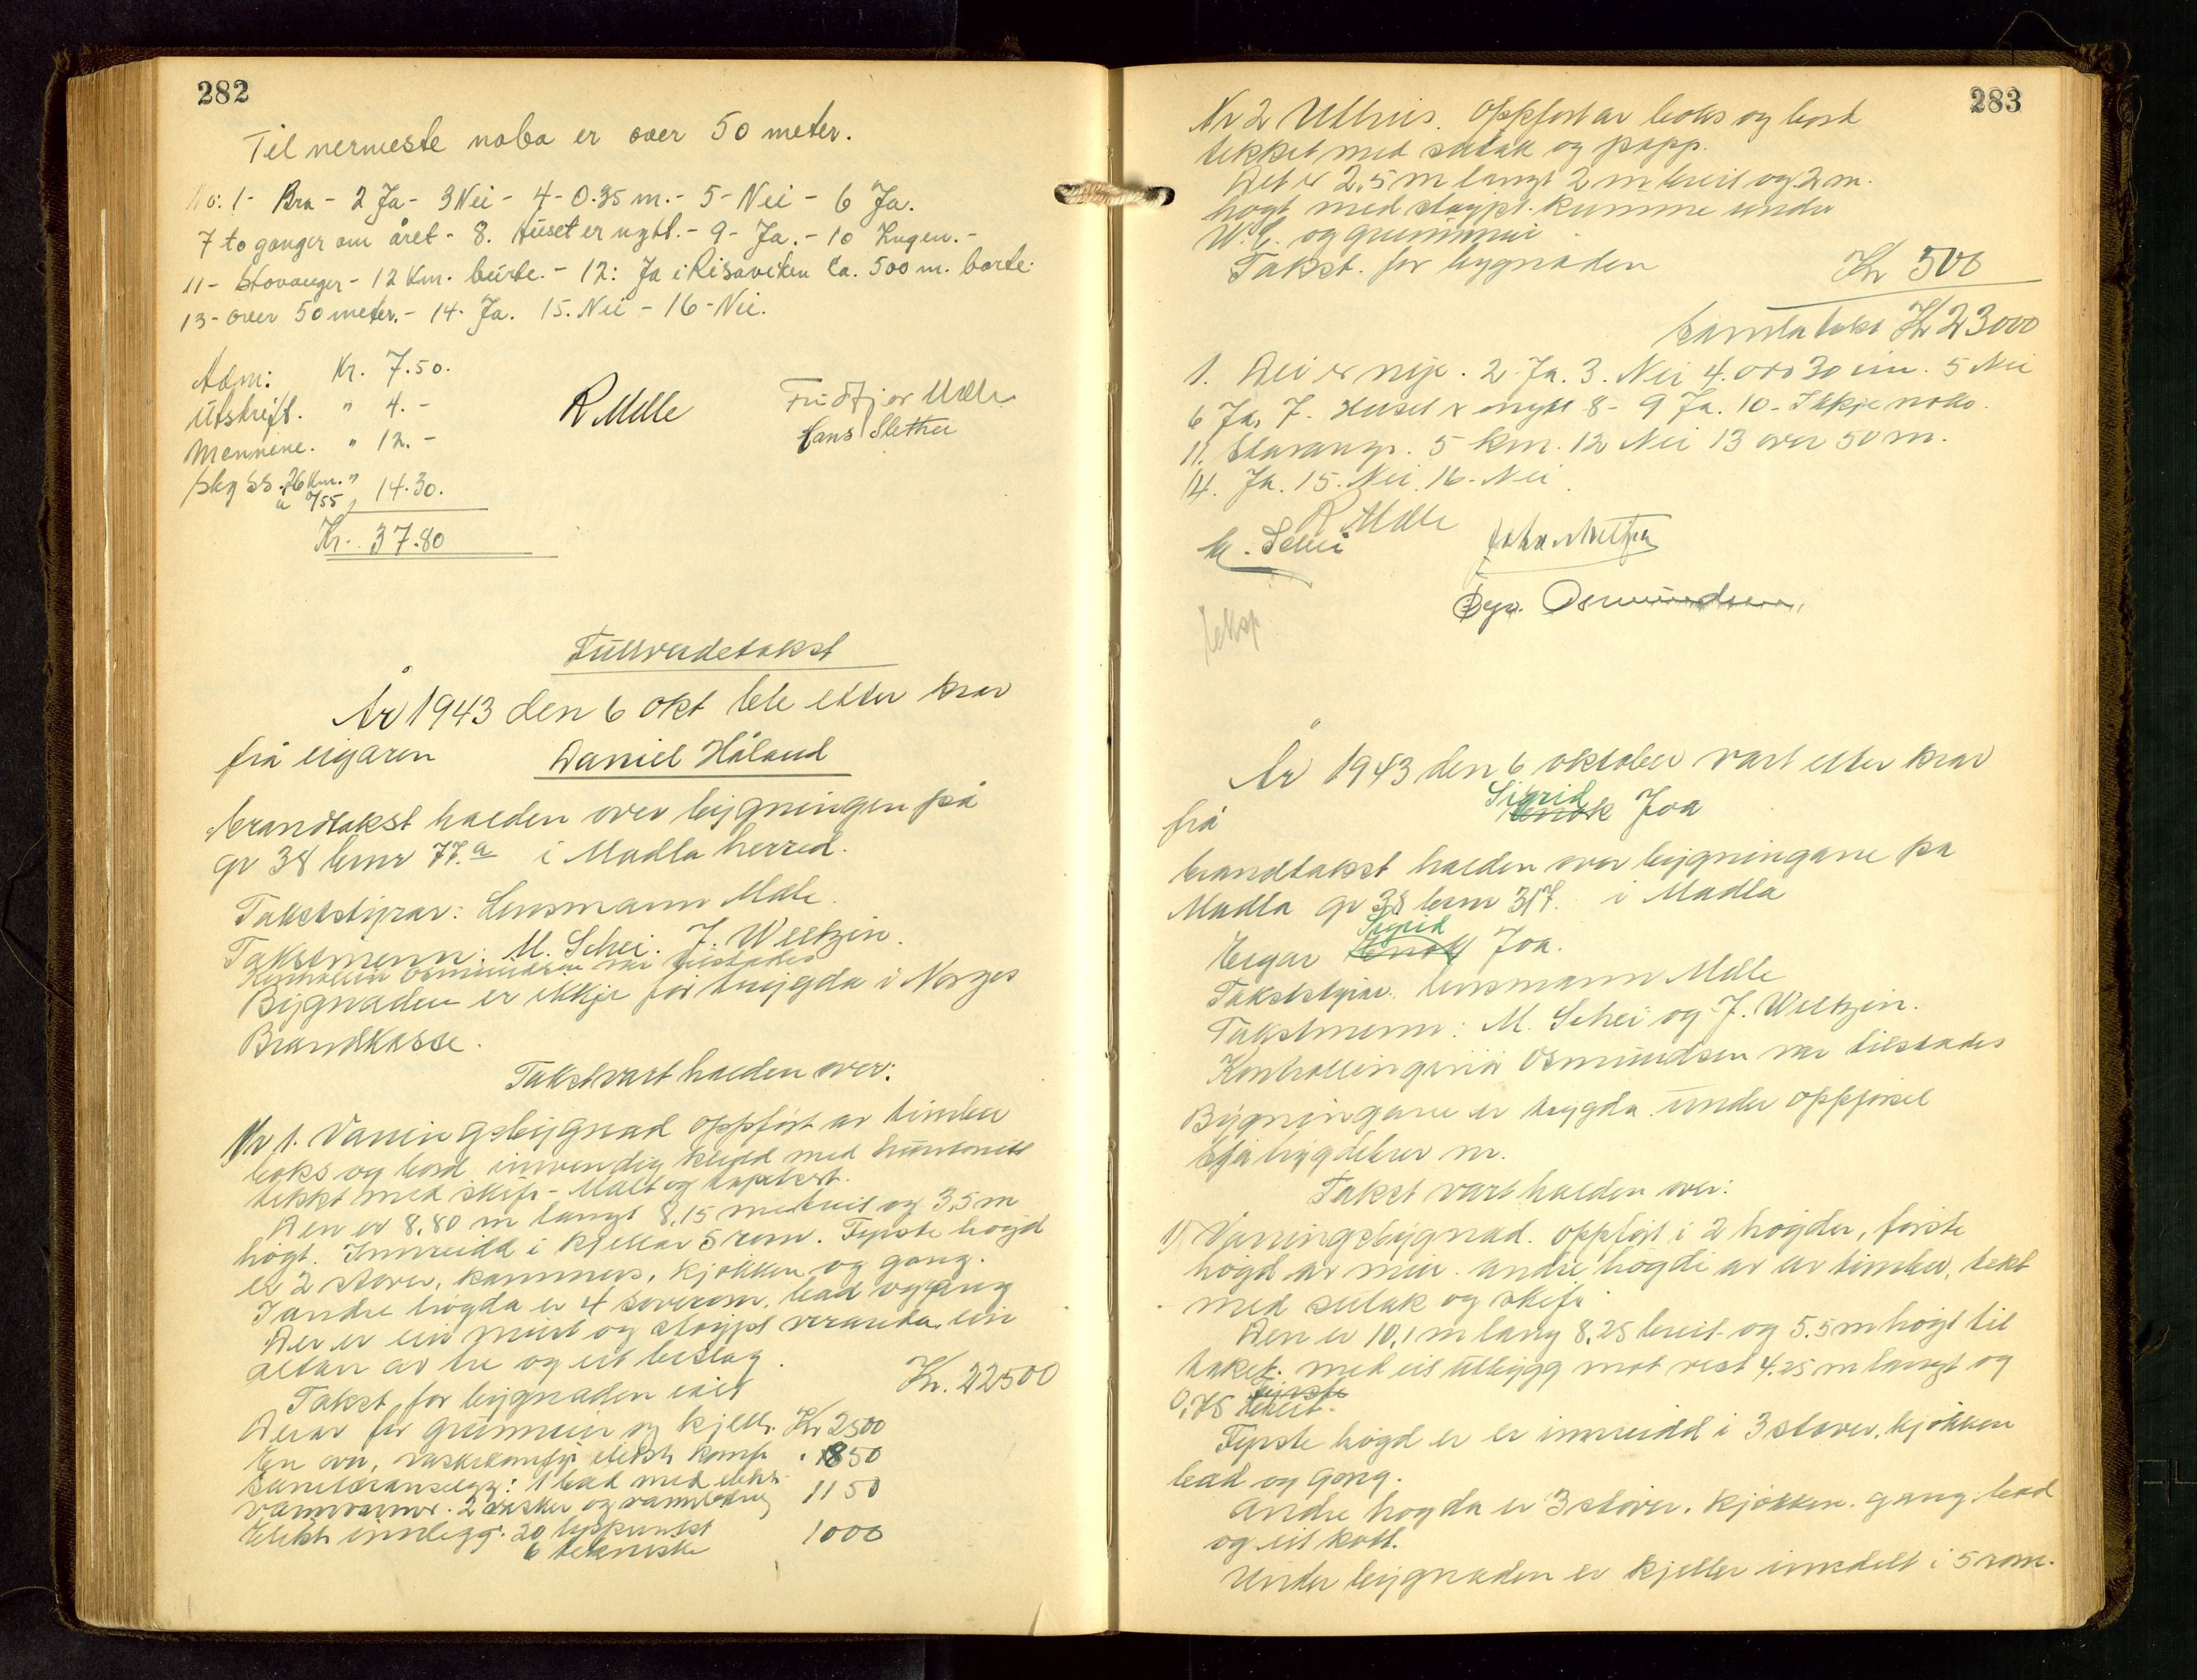 282
Til nermeste nabo er over 50 meter.
No: 1- Bra - 2 Ja - 3 Nei - 4 - 0.35 m. - 5 - Nei - 6 Ja.
7 to ganger om året - 8. Huset er nytt. - 9 - Ja. - 10 Ingen. -
11 - Stavanger - 12 Km. burte. - 12: Ja i Risaviken Ca. 500 m. borte.
13 - over 50 meter. - 14. Ja. 15. Nei - 16 - Nei.
Adm: Kr. 7.50.
Utskrift. " 4. -
Mennene. " 12. -
skyss. 26 Km. "
a 0/55 14.30.
Kr. 37.80
R Mæle
Fridtjov Mæle
Hans Slethei
Fullverdetakst
År 1943 den 6 okt ble etter krav
frå eigaren Daniel Håland
brandtakst halden over bygningen på
gr 38 brnr 77.a i Madla herred.
Takststyrar: Lensmann Mæle.
Takstmenn: M. Schei. J. Weltzin.
Kontrollør Osmundsen var tilstades
Bygnaden er ikkje før trygda i Norges
Brandkasse.
Takst vart halden over:
Nr 1. Vaningsbygnad oppført av timber
boks og bord innvendig kledd med huntonitt
tekkt med skifr - Malt og tapetsert.
Den er 8,80 m langt 8,15 m breit og 3,5 m
høgt. Innreidd i kjellar 5 rom. Fyrste høgd
er 2 stover, kammers, kjøkken og gang.
I andre høgda er 4 soverom, bad og gang
Der er ein murt og støypt veranda, ein
altan av tre og eit beslag.
Takst for bygnaden eit Kr. 22500
Derav for grunnmur og kjell. Kr 2500
En ovn, vaskekomfyr elektr. komf. " 1850
Sanitæranlegg: 1 bad med elektr.
varmvarmer. 2 vasker og vannledning 1150
Elektr innlegg. 20 lyspunkt 1000
6 tekniske
283
Nr 2 Uthus. Oppført av boks og bord
tekket med sutak og papp.
Det er 2,5 m langt 2 m breit og 2 m.
høgt med støypt kumme under
W.C. og grunnmur
Takst for bygnaden Kr 500
Samla takst Kr 23000
1. Dei er nye. 2 Ja. 3. Nei 4. 0.30 cm. 5 Nei
6 Ja. 7. Huset er nytt 8 - 9 Ja. 10 - Ikkje noko.
11. Stavanger. 5 km. 12 Nei 13 over 50 m.
14. Ja. 15. Nei. 16 - Nei.
R Mæle
M. Schei
Joh. Weltzin
Osmundsen
År 1943 den 6 oktober vart etter krav
Sigrid
frå Enok Joa
brandtakst halden over bygningane på
Madla gr 38 brnr 317. i Madla
Sigrid
Eigar Enok Joa.
Takststyrar. lensmann Mæle
Takstmenn: M. Schei og J. Weltzin.
Kontrollingeniør Osmundsen var tilstades
Bygningane er trygda under oppførsel
Sjå trygdebrev nr.
Takst vart halden over:
1) Vaningsbygnad. oppført i 2 høgder, første
høgd av mur. andre høgdi av av timber, tekt
med sutak og skifr.
Den er 10,1 m lang 8,25 breit og 5.5 m høgt til
taket. med eit utbygg mot vest 4,25 m langt og
fyrste
0,75 breit.
Fyrste høgd er er innreidd i 3 stover, kjøkken
bad og gang.
Andre høgda er 3 stover, kjøkken. gang. bad
og eit kott.
Under bygnaden er kjeller inndelt i 5 rom.